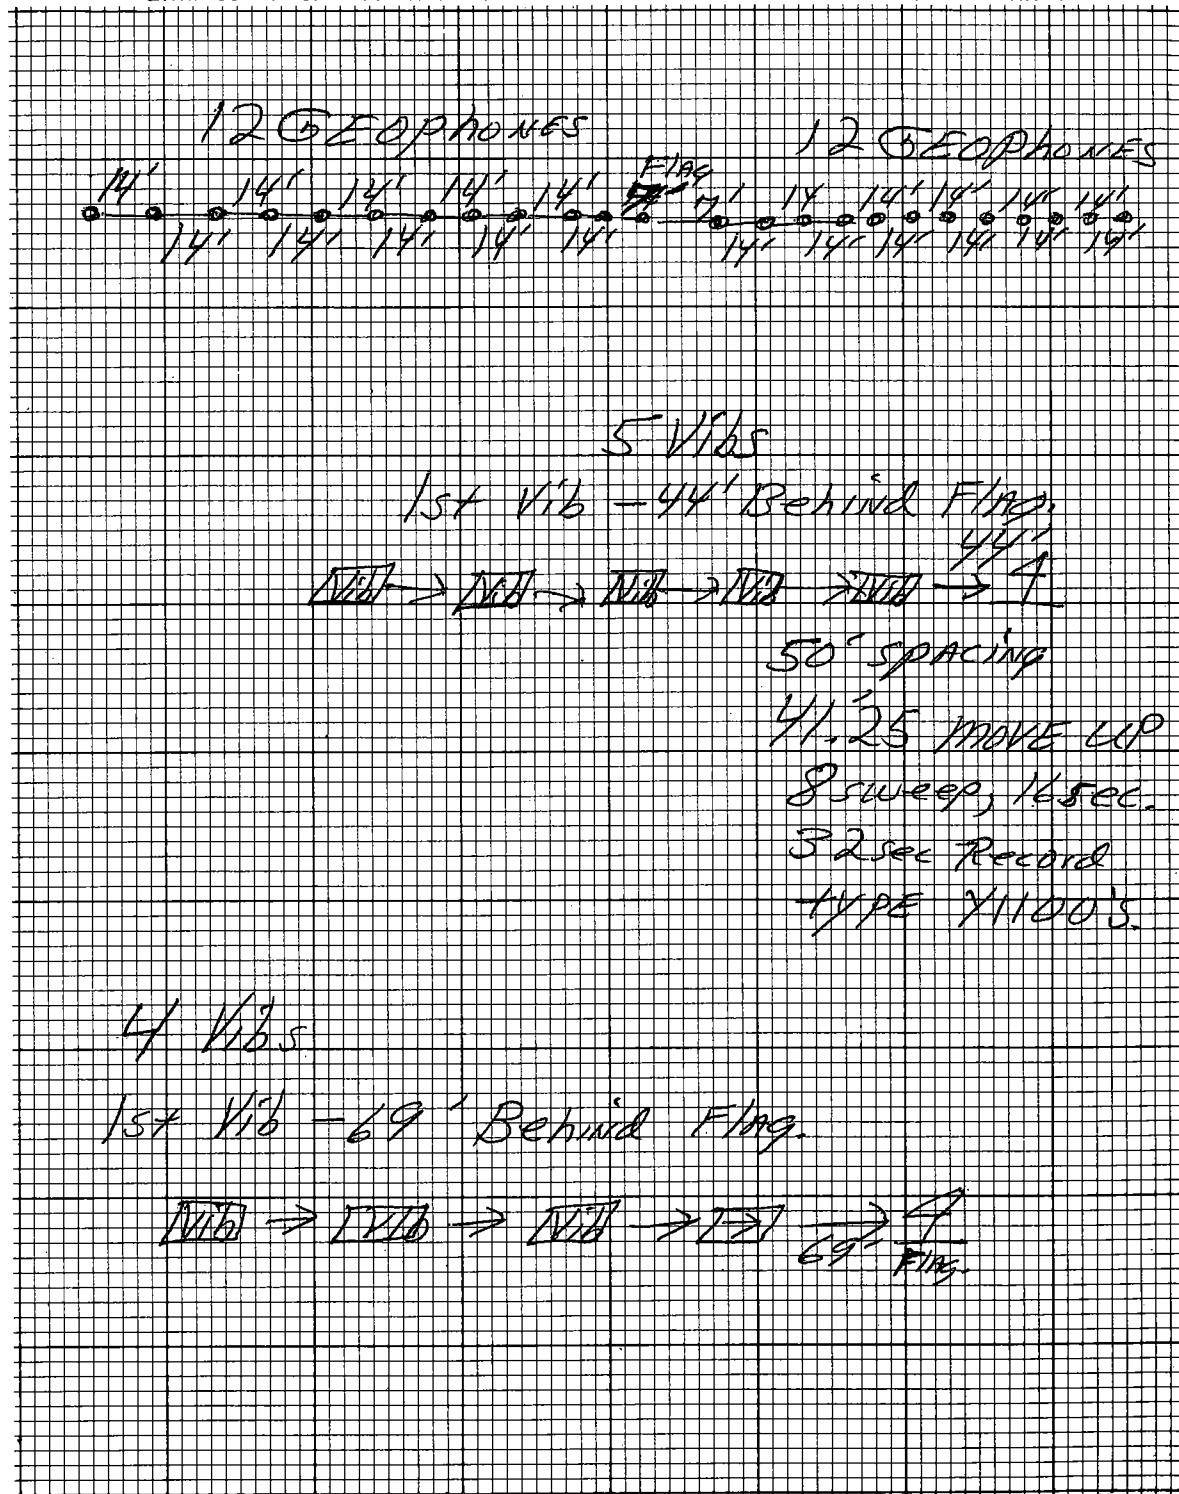 12 GEOPhONES
12 GEOPhONES
Flag
14' 14' 14' 14' 14' 7' 14 14' 14' 14' 14'
14' 14' 14' 14' 14' 14' 14' 14' 14' 14' 14'
5 Vibs
1st Vib - 44' Behind Flag.
44'
Vib Vib Vib Vib Vib
50' SPACING
41.25 MOVE UP
8 sweep, 16 sec.
32 sec Record
tYPE Y1100's.
4 Vibs
1st Vib - 69' Behind Flag.
Vib Vib Vib
69' Flag.